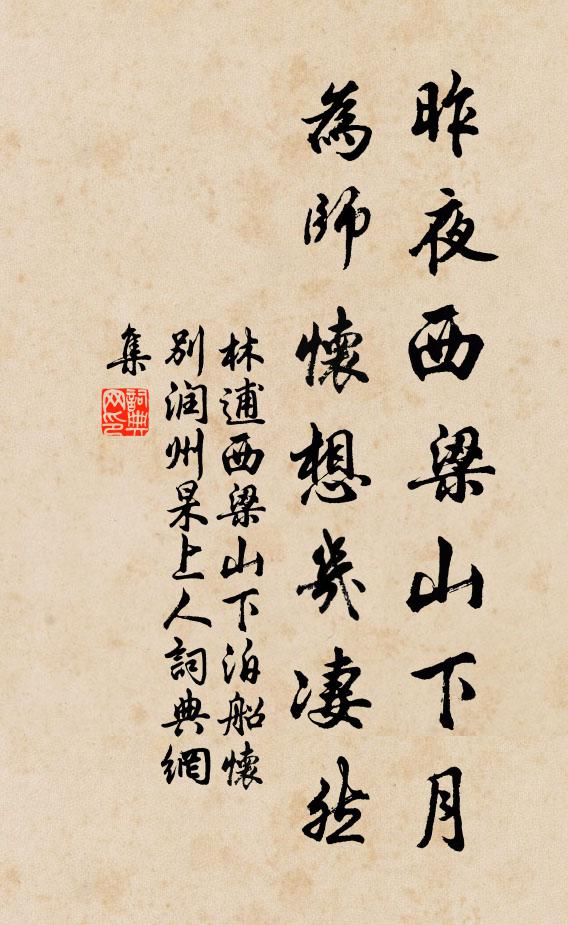 昨夜西梁山下月
為師懷想幾淒然
林逋西梁山下泊船懷
別潤州杲上人詞典網
集
詞典
网印